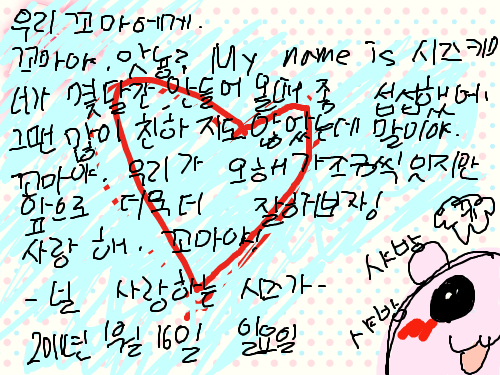 우리 꼬마에게.
꼬마야, 안뇽? My name is 시즈케
너가 몇달간 안들어 올때 좀 섭섭했어.
그땐 많이 친하지도 않았는데 말이야.
꼬마야. 우리가 오해가 조금씩 있지만
앞으로 더욱 더 잘섬겨보자!
사랑해. 꼬마야!
-널 사랑하는 시즈가-
2011년 1월 16일 일요일
샤방
샤방